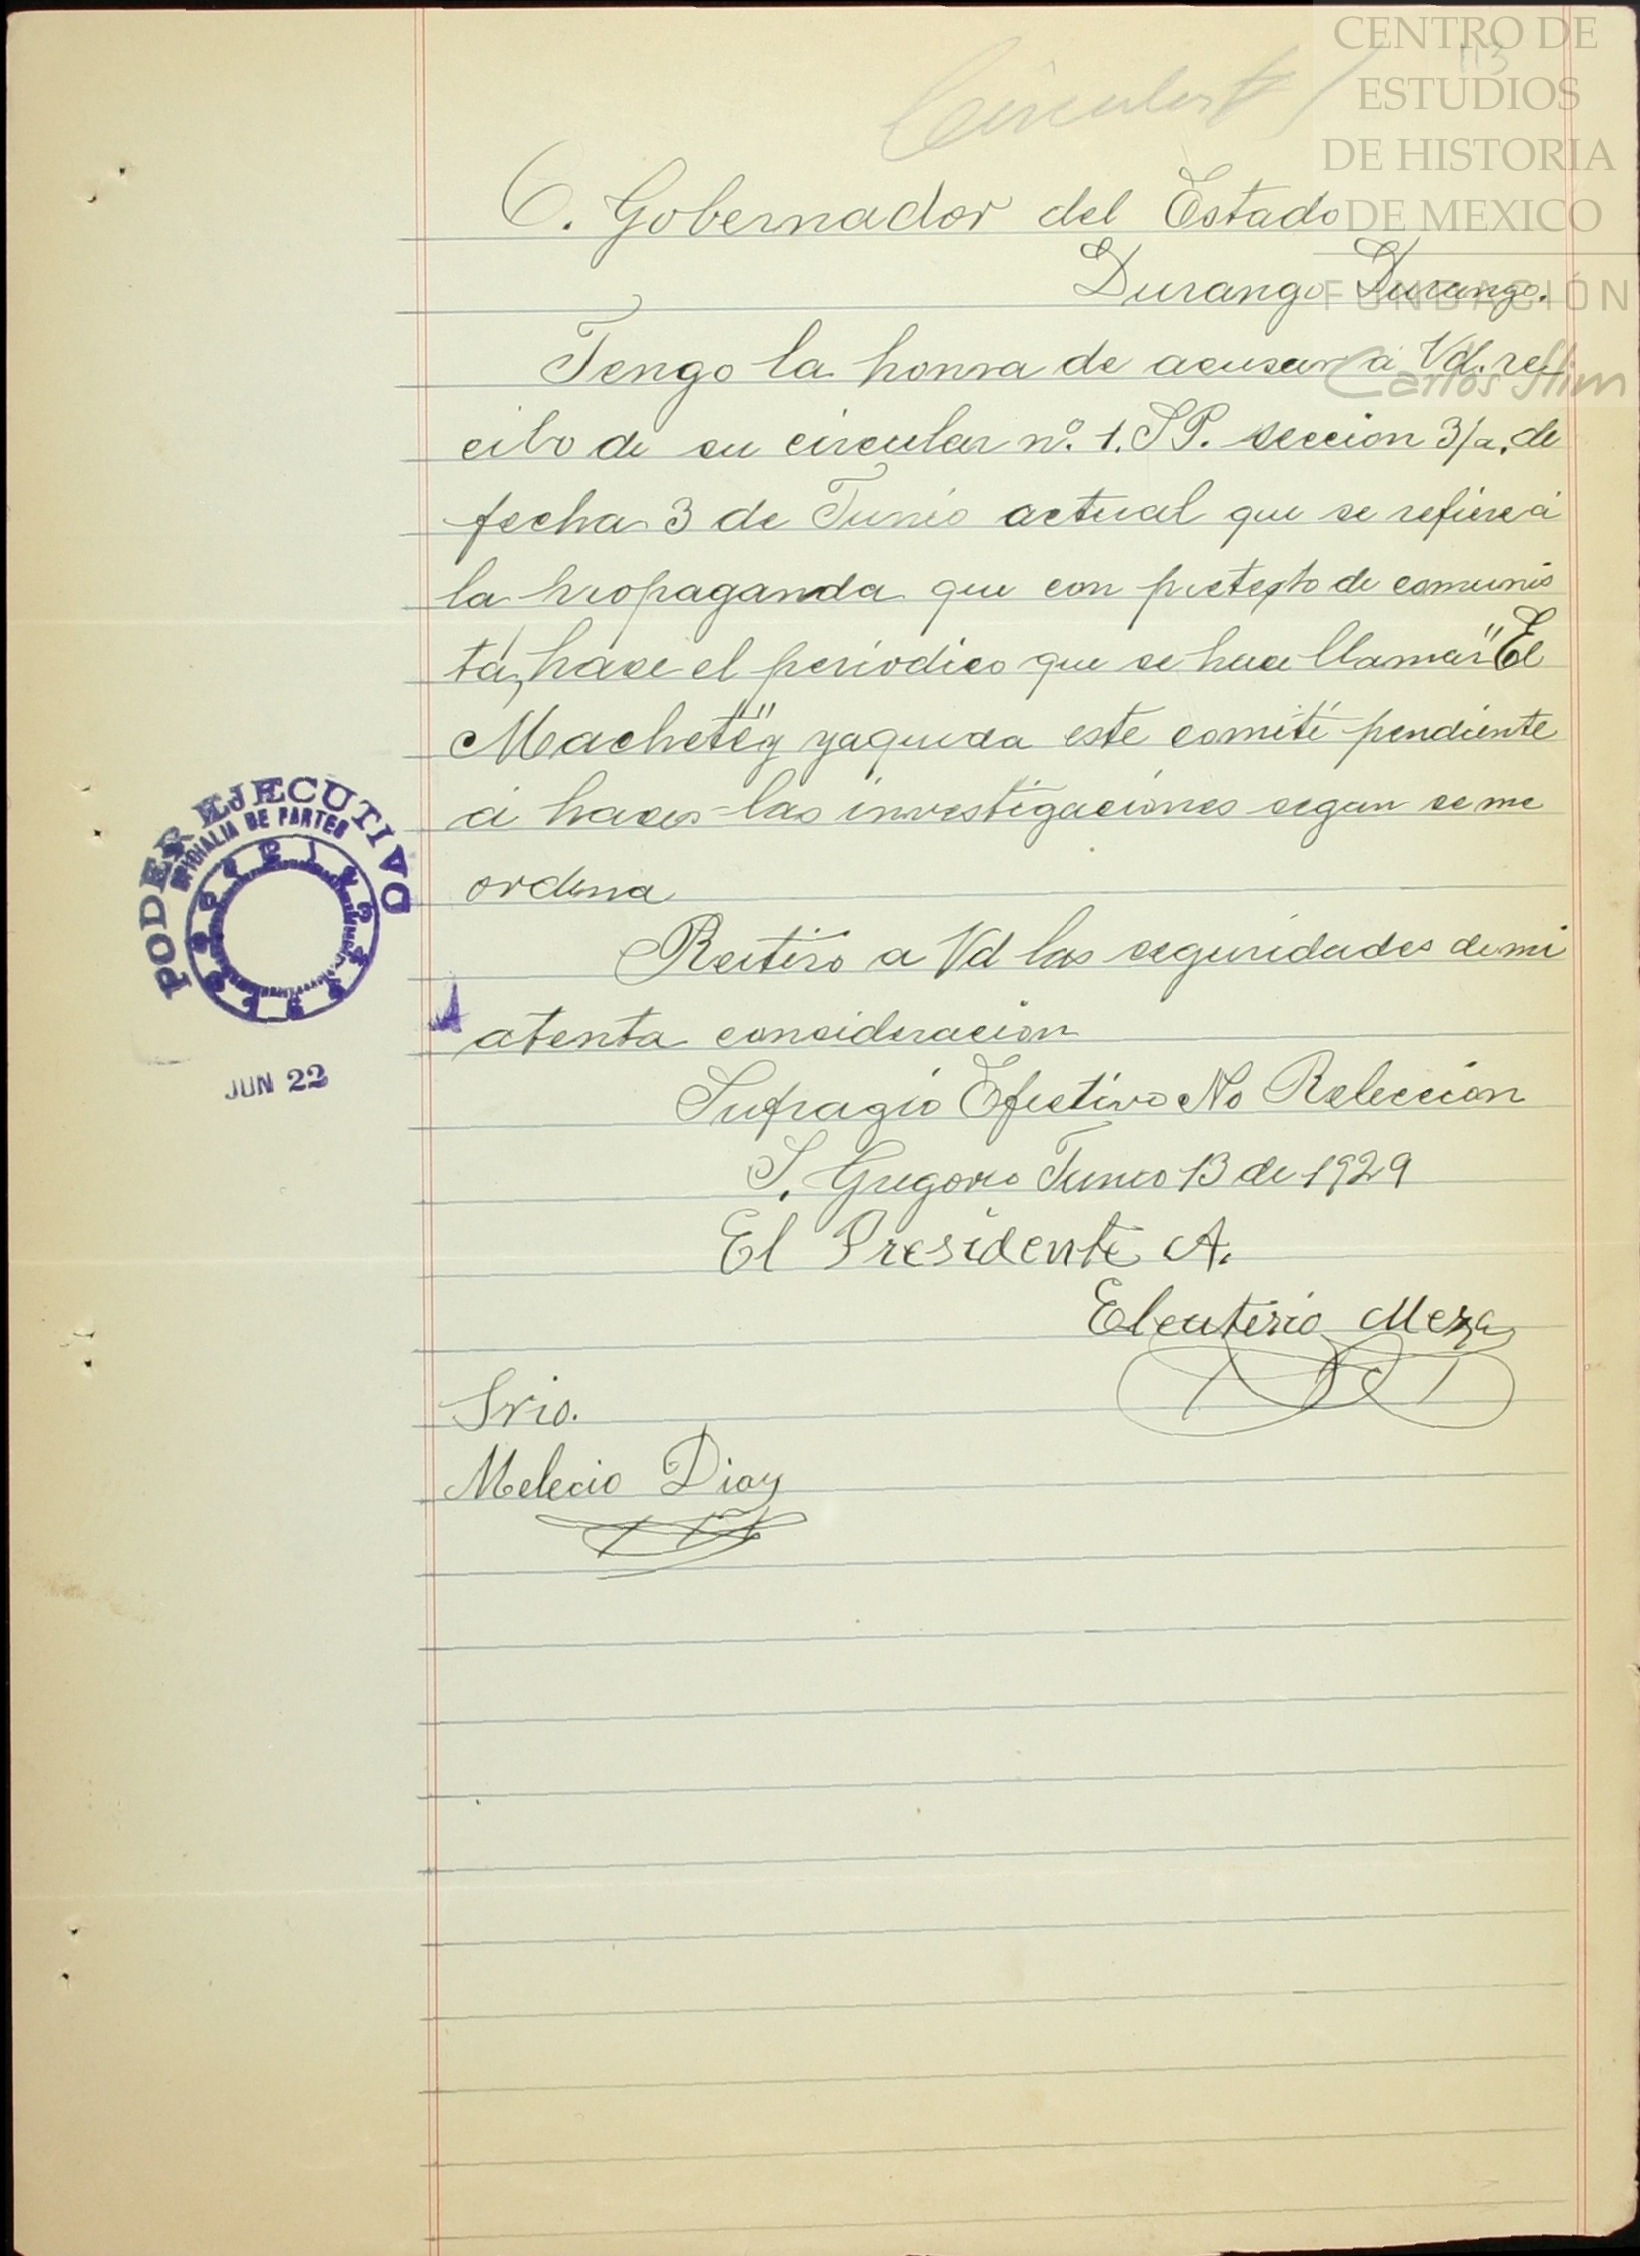 CENTRO DE
ESTUDIOS
DE HISTORIA
DE MEXICO
FUNDACIÓN
Carlos Slim
113
Circular 1
C. Gobernador del Estado
Durango Durango.
Tengo la honra de acusar a Vd. re-
cibo de su circular nº. 1. S P. seccion 3/a, de
fecha 3 de Junio actual que se refiere á
la propaganda que con pretexto de comunis
ta, hace el periodico que se hace llamar "El
Machete" y ya queda este comité pendiente
á hacer las investigaciones segun se me
ordena
Reitiro a Vd las seguridades de mi
atenta consideracion
Sufragio Efectivo No Relección
S. Gregorio Junio 13 de 1929
El Presidente A.
Eleuterio Meza
Srio.
Melecio Diaz
PODER EJECUTIVO
OFICIALIA DE PARTES
JUN 22